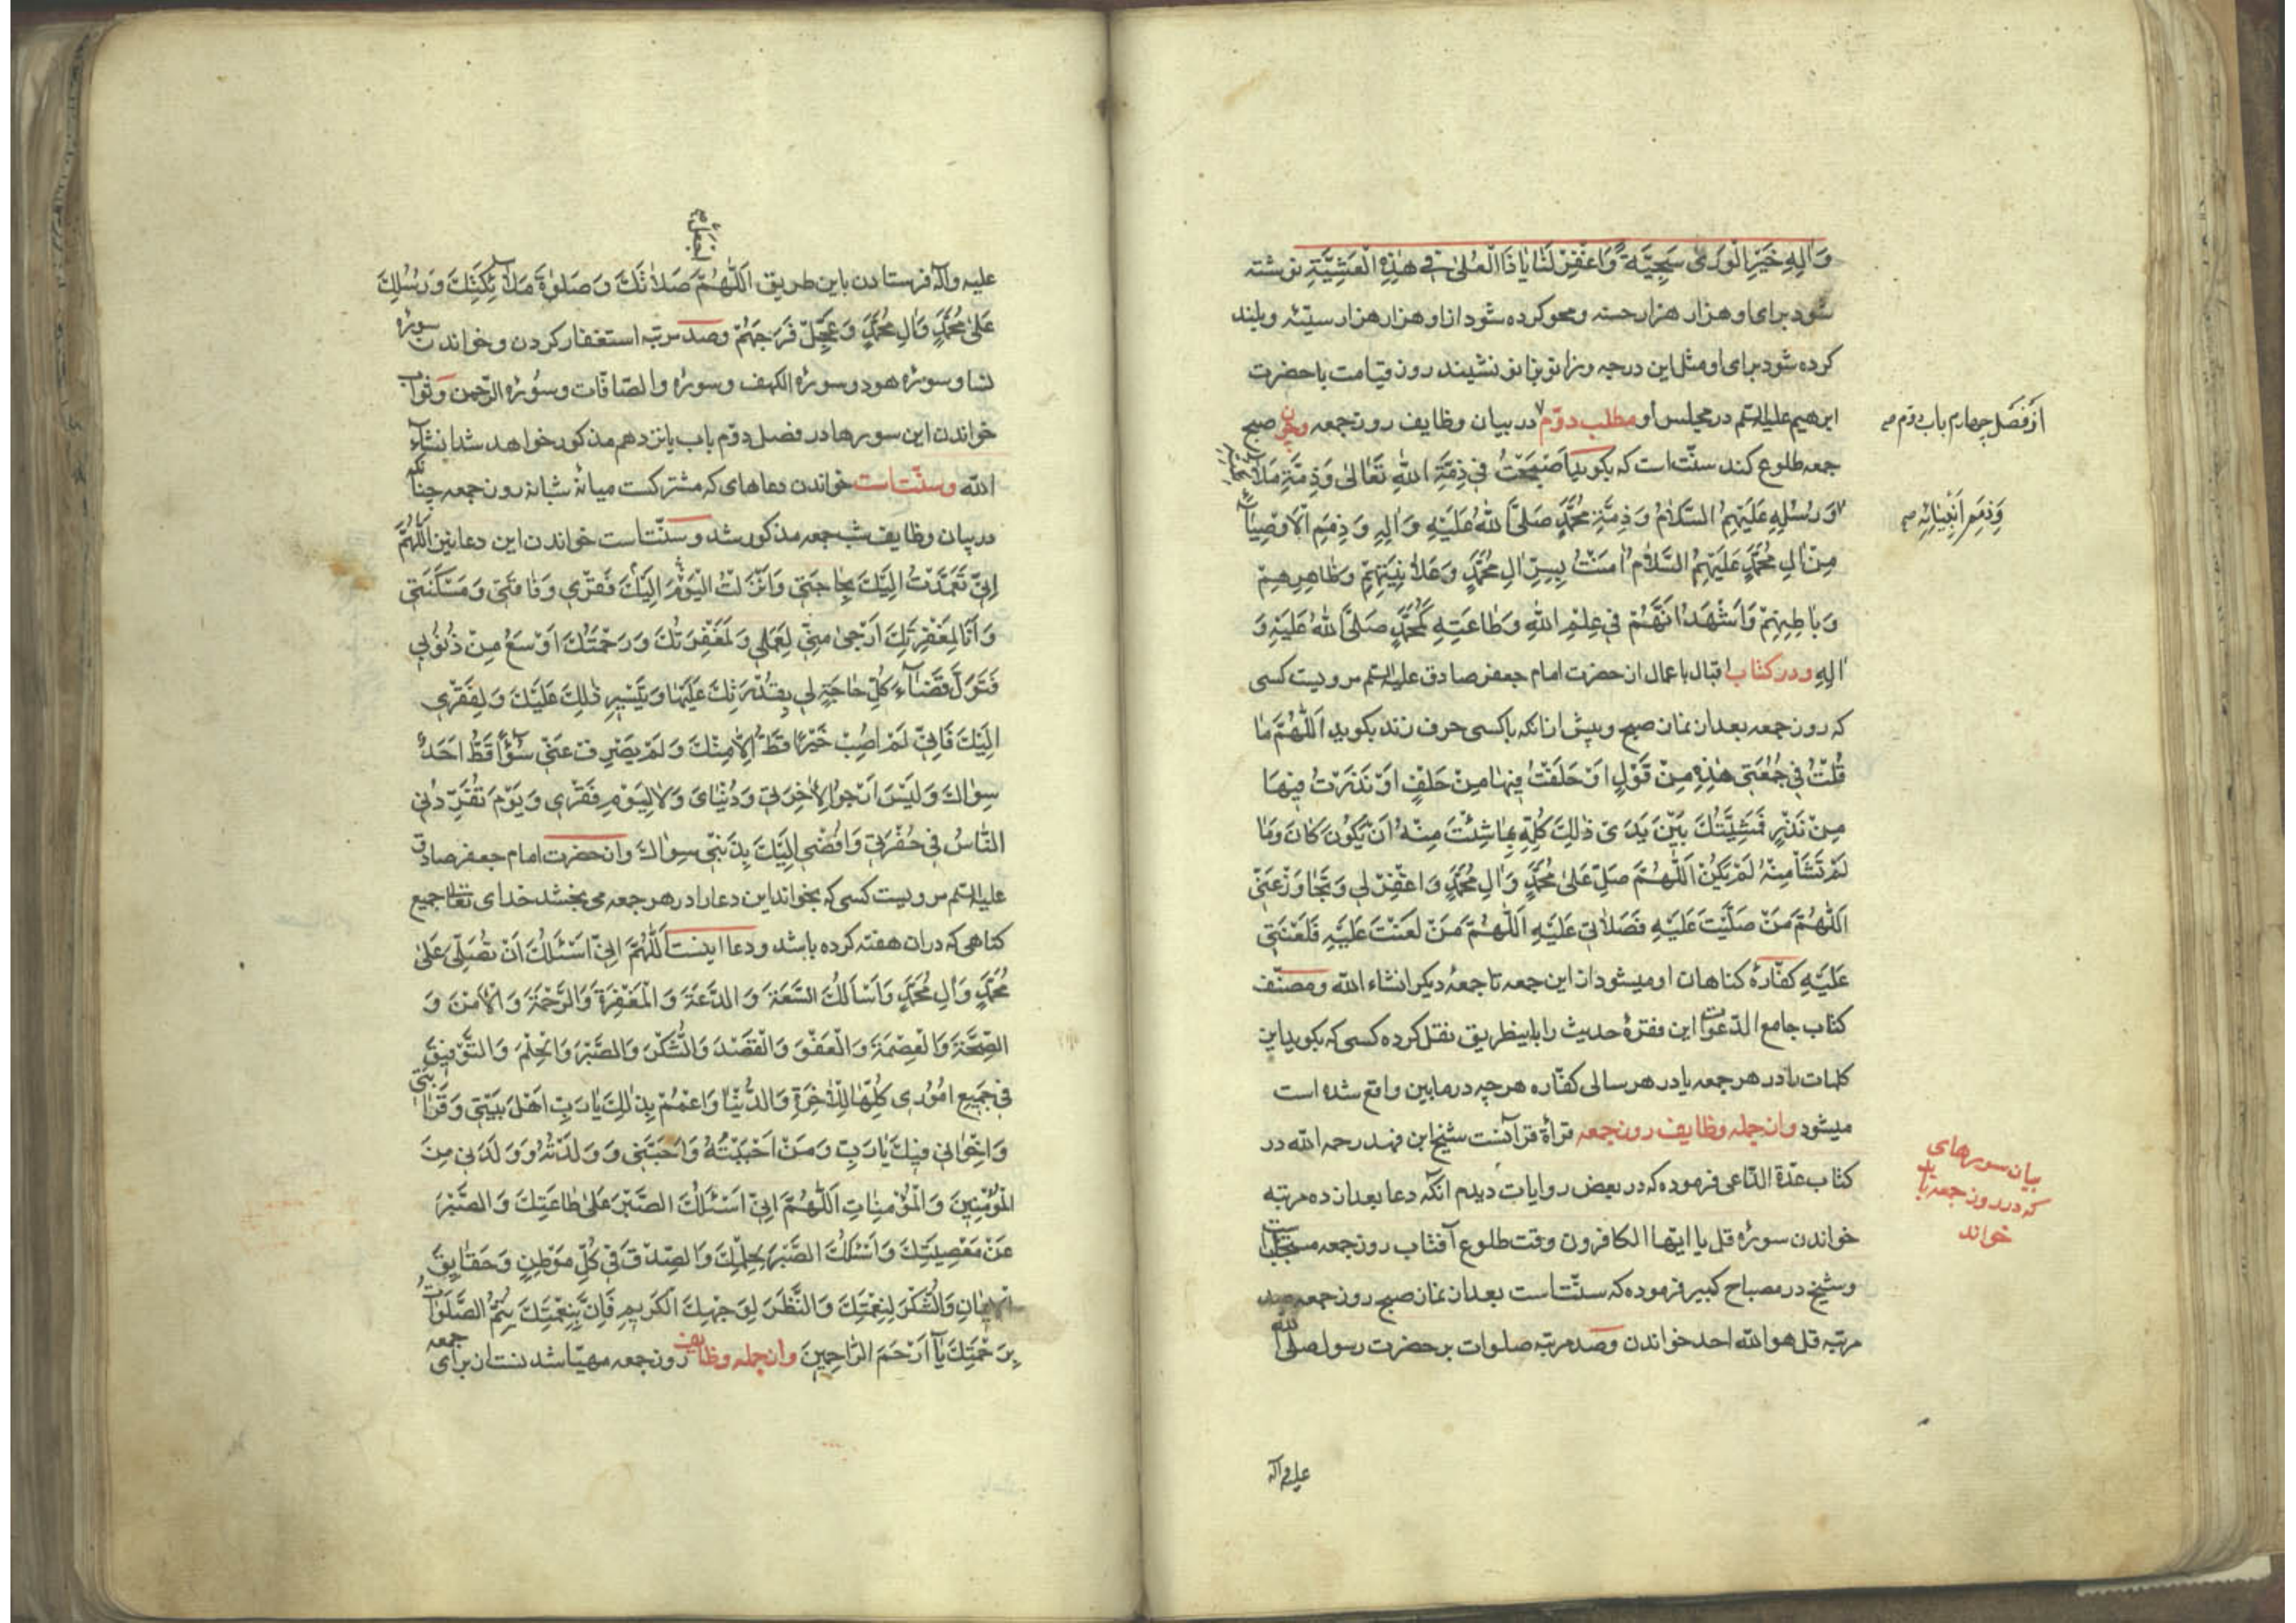 وَاٰلِهِ خَيْرِ الْوَرىٰ سَجِيَّةً وَاغْفِرْ لَنٰا يٰا ذَا الْعُلىٰ فى هٰذِهِ الْعَشِيَّةِ نوشته
شود برای او هزار هزار حسنه و محو کرده شود از او هزار هزار سیّئه و بلند
کرده شود برای او مثل این درجه و زانو بزانو نشیند روز قیامت با حضرت
ابرهیم علیه السّلم در مجلس او مطلب دوّم در بیان وظایف روز جمعه و چون صبح
از فصل چهارم باب دوّم صح
جمعه طلوع کند سنّت است که بکوید اَصْبَحْتُ فى ذِمَّةِ اللّٰهِ تَعٰالىٰ وَذِمَّةِ مَلاٰئِكَتِهِ
وَرُسُلِهِ عَلَيْهِمُ السَّلاٰمُ وَذِمَّةِ مُحَمَّدٍ صَلَّى اللّٰهُ عَلَيْهِ وَاٰلِهِ وَذِمَمِ الْاَوْصِيٰاءِ
وَذِمَمِ اَنْبِيٰائِهِ صح
مِنْ اٰلِ مُحَمَّدٍ عَلَيْهِمُ السَّلاٰمُ اٰمَنْتُ بِسِرِّ اٰلِ مُحَمَّدٍ وَعَلاٰنِيَتِهِمْ وَظٰاهِرِهِمْ
وَبٰاطِنِهِمْ وَاَشْهَدُ اَنَّهُمْ فى عِلْمِ اللّٰهِ وَطٰاعَتِهِ كَمُحَمَّدٍ صَلَّى اللّٰهُ عَلَيْهِ وَ
اٰلِهِ و در کتاب اقبال باعمال از حضرت امام جعفر صادق علیه السّلم مرویست کسی
که روز جمعه بعد از نماز صبح و پیش از انکه باکسی حرف زند بکوید اَللّٰهُمَّ مٰا
قُلْتُ فى جُمُعَتى هٰذِهِ مِنْ قَوْلٍ اَوْ حَلَفْتُ فيهٰا مِنْ حَلْفٍ اَوْ نَذَرْتُ فيهٰا
مِنْ نَذْرٍ فَمَشِيَّتُكَ بَيْنَ يَدَىْ ذٰلِكَ كُلِّهِ فَمٰا شِئْتَ مِنْهُ اَنْ يَكُونَ كٰانَ وَمٰا
لَمْ تَشَأْ مِنْهُ لَمْ يَكُنْ اَللّٰهُمَّ صَلِّ عَلىٰ مُحَمَّدٍ وَاٰلِ مُحَمَّدٍ وَاغْفِرْ لى وَتَجٰاوَزْ عَنّى
اَللّٰهُمَّ مَنْ صَلَّيْتَ عَلَيْهِ فَصَلاٰتى عَلَيْهِ اَللّٰهُمَّ مَنْ لَعَنْتَ عَلَيْهِ فَلَعْنَتى
عَلَيْهِ کفّارهٔ کناهان او میشود از این جمعه تا جمعهٔ دیکر انشاء الله و مصنّف
کتاب جامع الدّعوات این فقرهٔ حدیث را باینطریق نقل کرده کسی که بکوید این
کلمات را در هر جمعه یا در هر سالی کفّاره هر چه در مابین واقع شده است
میشود و از جمله وظایف روز جمعه قرأة قرآنست شیخ ابن فهد رحمه الله در
کتاب عدّة الدّاعی فرموده که در بعض روایات دیدم انکه دعا بعد از ده مرتبه
بیان سورهای
که در روز جمعه باید
خواند
خواندن سورهٔ قل یا ایّها الکافرون وقت طلوع آفتاب روز جمعه مستجابست
و شیخ در مصباح کبیر فرموده که سنّتاست بعد از نماز صبح روز جمعه صد
مرتبه قل هو الله احد خواندن و صد مرتبه صلوات بر حضرت رسول صلی الله
علیه و آله
اجعل صح
علیه وآله فرستادن باین طریق اَللّٰهُمَّ صَلاٰتَكَ وَصَلٰوةَ مَلاٰئِكَتِكَ وَرُسُلِكَ
عَلىٰ مُحَمَّدٍ وَاٰلِ مُحَمَّدٍ وَعَجِّلْ فَرَجَهُمْ و صد مرتبه استغفار کردن و خواندن سورهٔ
نسا و سورهٔ هود و سورهٔ الکهف و سورهٔ والصّافّات و سورهٔ الرّحمن و ثواب
خواندن این سورها در فصل دوّم باب یانزدهم مذکور خواهد شد انشآء
الله و سنّت است خواندن دعاهای که مشترکست میانهٔ شبانه روز جمعه چنانکه
در بیان وظایف شب جمعه مذکور شد و سنّتاست خواندن این دعا نیز اَللّٰهُمَّ
اِنّى تَعَمَّدْتُ اِلَيْكَ بِحٰاجَتى وَاَنْزَلْتُ الْيَوْمَ اِلَيْكَ فَقْرى وَفٰاقَتى وَمَسْكَنَتى
وَاَنَا لِمَغْفِرَتِكَ اَرْجىٰ مِنّى لِعَمَلى وَلَمَغْفِرَتُكَ وَرَحْمَتُكَ اَوْسَعُ مِنْ ذُنُوبى
فَتَوَلَّ قَضٰآءَ كُلِّ حٰاجَةٍ لى بِقُدْرَتِكَ عَلَيْهٰا وَتَيْسيرِ ذٰلِكَ عَلَيْكَ وَلِفَقْرى
اِلَيْكَ فَاِنّى لَمْ اُصِبْ خَيْرًا قَطُّ اِلاّٰ مِنْكَ وَلَمْ يَصْرِفْ عَنّى سُوٓءًا قَطُّ اَحَدٌ
سِوٰاكَ وَلَيْسَ اَرْجُو لِاٰخِرَتى وَدُنْيٰاىَ وَلاٰ لِيَوْمِ فَقْرى وَيَوْمَ تَفَرُّدُنى
النّٰاسُ فى حُفْرَتى وَاُفْضى اِلَيْكَ بِذَنْبى سِوٰاكَ و از حضرت امام جعفر صادق
علیه السّلم مرویست کسی که بخواند این دعا را در هر جمعه می بخشد خدای تعالی جمیع
کناهی که در ان هفته کرده باشد و دعا اینست اَللّٰهُمَّ اِنّى اَسْئَلُكَ اَنْ تُصَلِّىَ عَلىٰ
مُحَمَّدٍ وَاٰلِ مُحَمَّدٍ وَاَسْاَلُكَ السَّعَةَ وَالدَّعَةَ وَالْمَغْفِرَةَ وَالرَّحْمَةَ وَالْاَمْنَ وَ
الصِّحَّةَ وَالْعِصْمَةَ وَالْعَفْوَ وَالْقَصْدَ وَالشُّكْرَ وَالصَّبْرَ وَالْحِلْمَ وَالتَّوْفيقَ
فى جَميعِ اُمُورى كُلِّهٰا لِلْاٰخِرَةِ وَالدُّنْيٰا وَاعْمُمْ بِذٰلِكَ يٰا رَبِّ اَهْلَ بَيْتى وَقَرٰابَتى
وَاِخْوٰانى فيكَ يٰا رَبِّ وَمَنْ اَحْبَبْتُهُ وَاَحَبَّنى وَوَلَدْتُهُ وَوَلَدَنى مِنَ
الْمُؤْمِنينَ وَالْمُؤْمِنٰاتِ اَللّٰهُمَّ اِنّى اَسْئَلُكَ الصَّبْرَ عَلىٰ طٰاعَتِكَ وَالصَّبْرَ
عَنْ مَعْصِيَتِكَ وَاَسْئَلُكَ الصَّبْرَ لِحِلْمِكَ وَالصِّدْقَ فى كُلِّ مَوْطِنٍ وَحَقٰايِقَ
الْايمٰانِ وَالشُّكْرَ لِنِعْمَتِكَ وَالنَّظَرَ لِوَجْهِكَ الْكَريمِ فَاِنَّ بِنِعْمَتِكَ يَتِمُّ الصَّلَوٰاتُ
بِرَحْمَتِكَ يٰآ اَرْحَمَ الرّٰاحِمينَ و از جمله وظایف روز جمعه مهیّا شدنست از برای جمعه